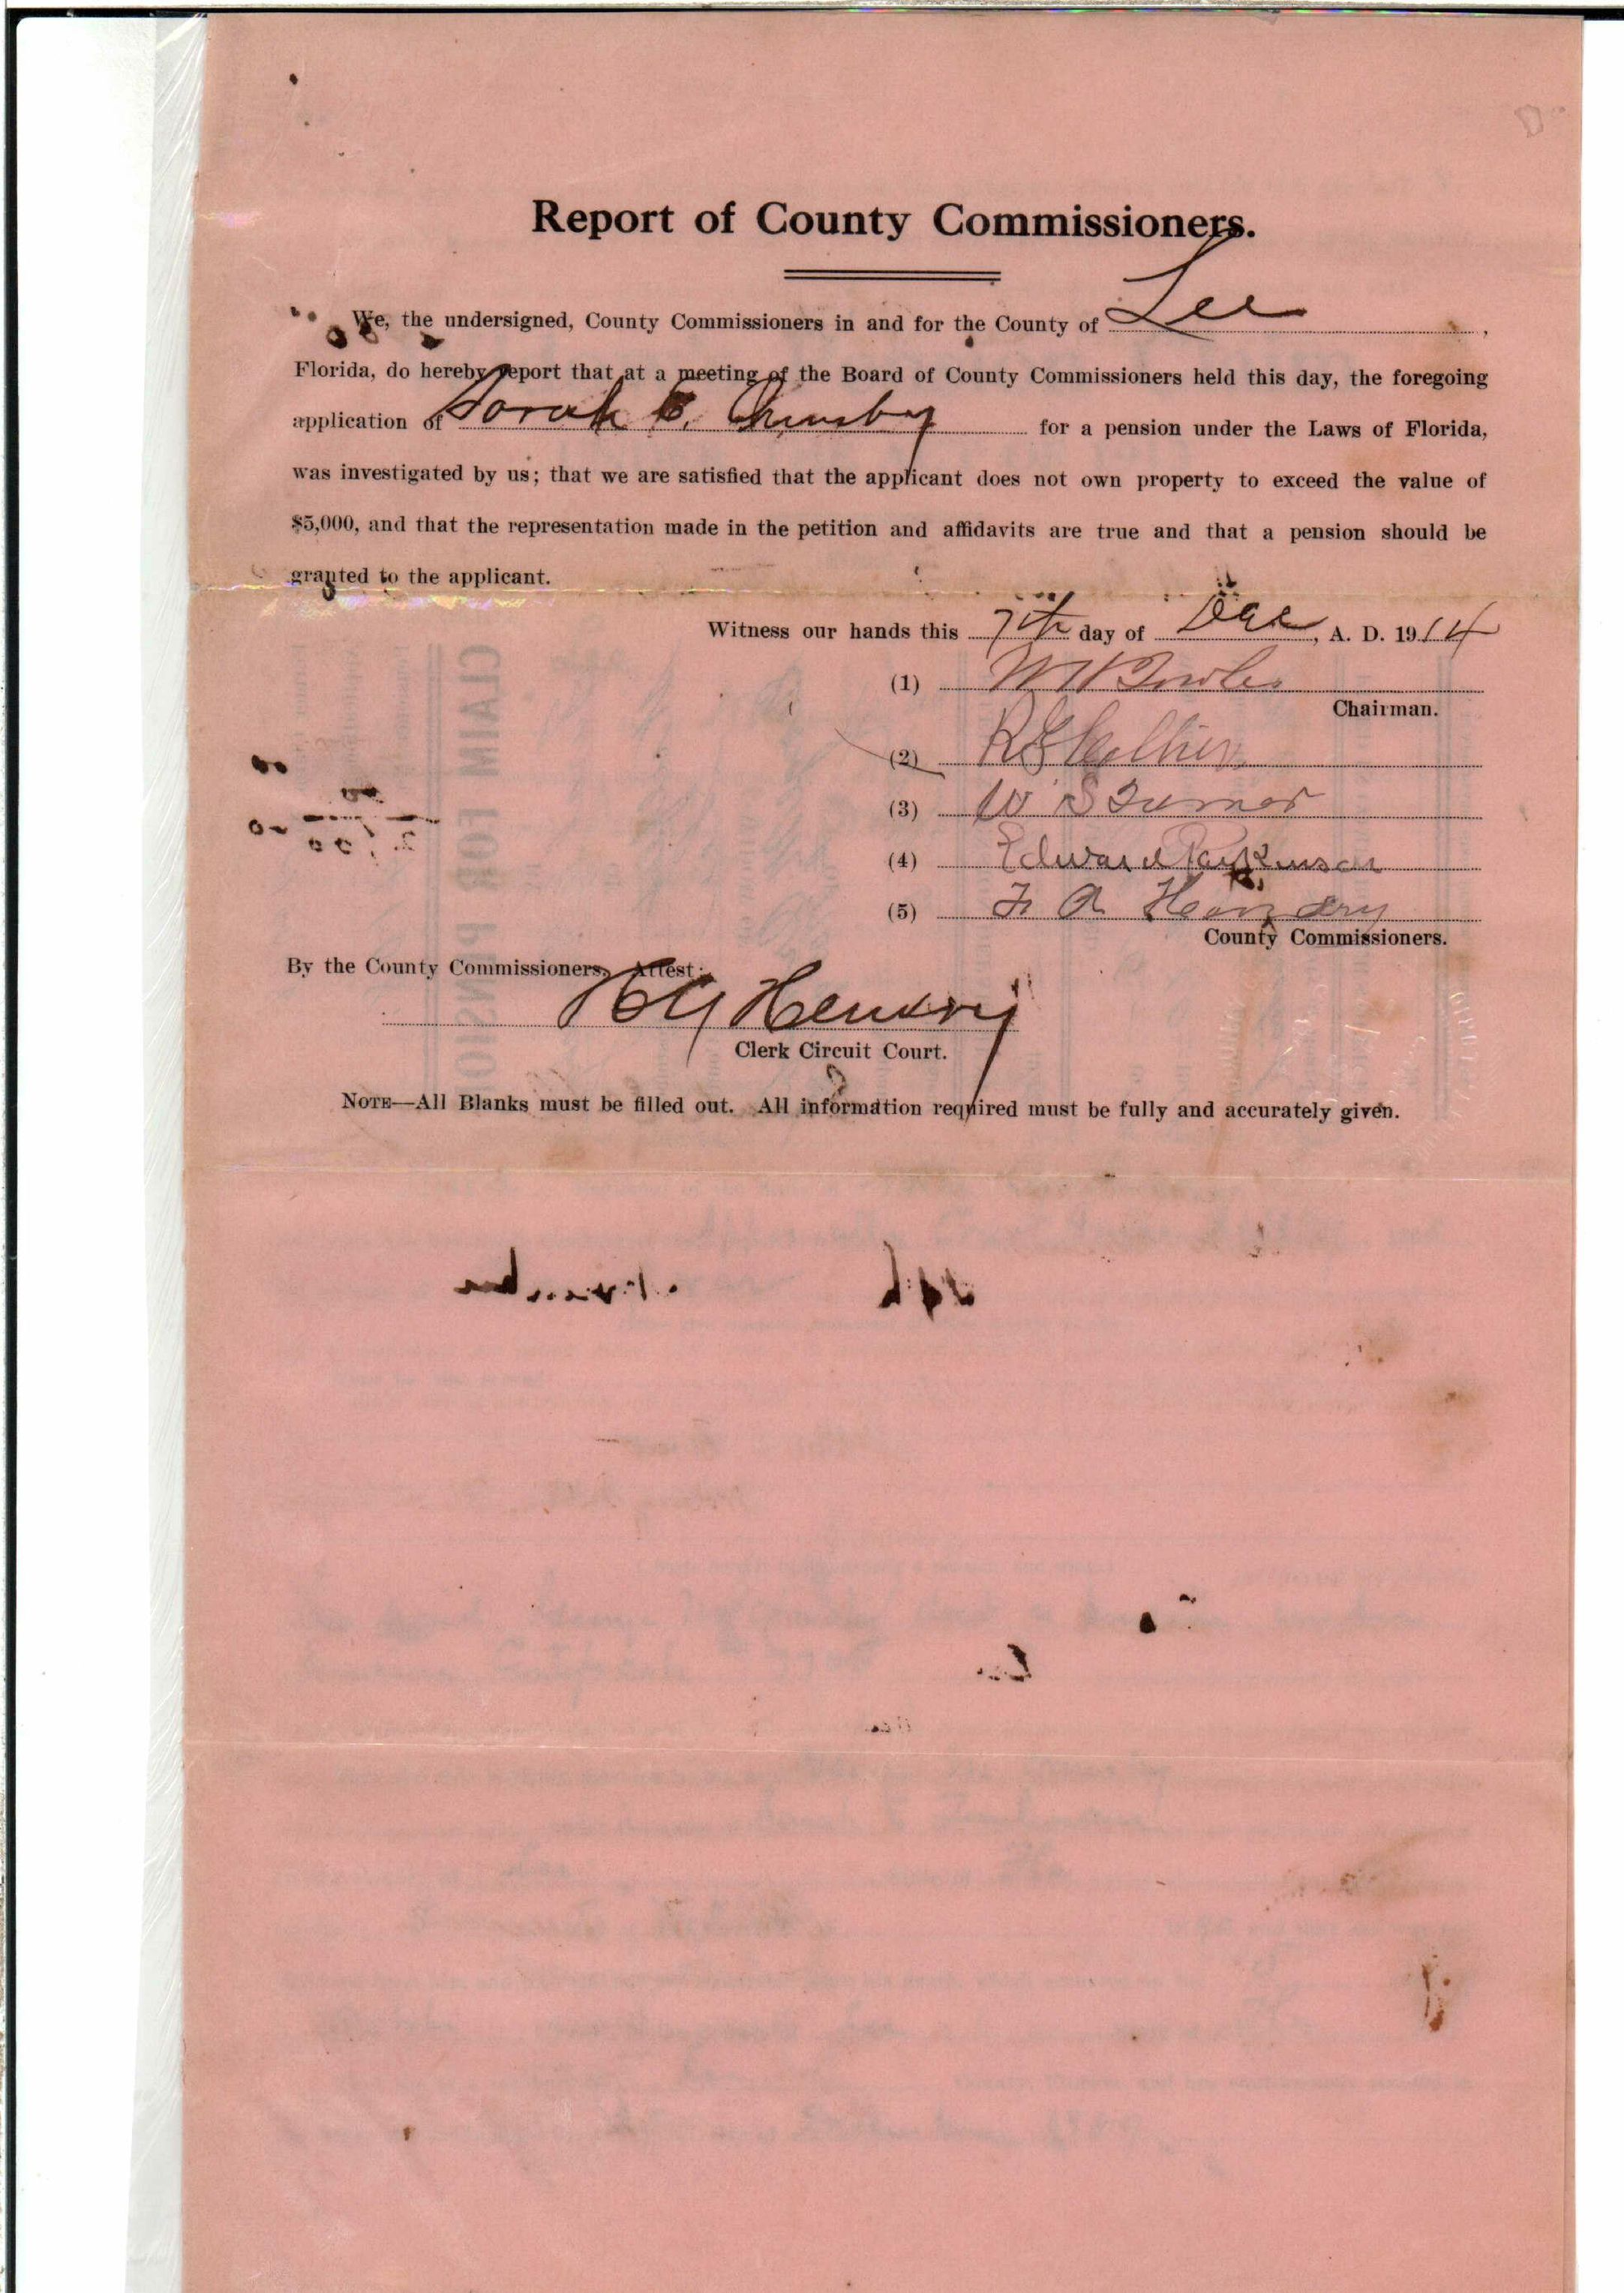 Report of County Commissioners.
We, the undersigned, County Commissioners in and for the County of Lee,
Florida, do hereby report that at a meeting of the Board of County Commissioners held this day, the foregoing
application of Sarah E. for a pension under the Laws of Florida,
was investigated by us; that we are satisfied that the applicant does not own property to exceed the value of
$5,000, and that the representation made in the petition and affidavits are true and that a pension should be
granted to the applicant.
Witness our hands this 7th day of Dec, A. D. 1914
(1) W H Towles
Chairman.
(2) R G Collier
(3) W S Turner
(4) Edward Parkinson
(5) F A Hendry
County Commissioners.
By the County Commissioners, Attest:
Hendry
Clerk Circuit Court.
NOTE—All Blanks must be filled out. All information required must be fully and accurately given.
CLAIM FOR PENSION